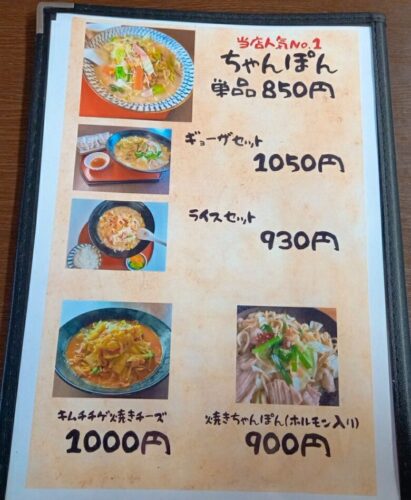 当店人気No.1
ちゃんぽん
単品850円
ギョーザセット
1050円
ライスセット
930円
キムチチゲ焼きチーズ
1000円
焼きちゃんぽん(ホルモン入り)
900円